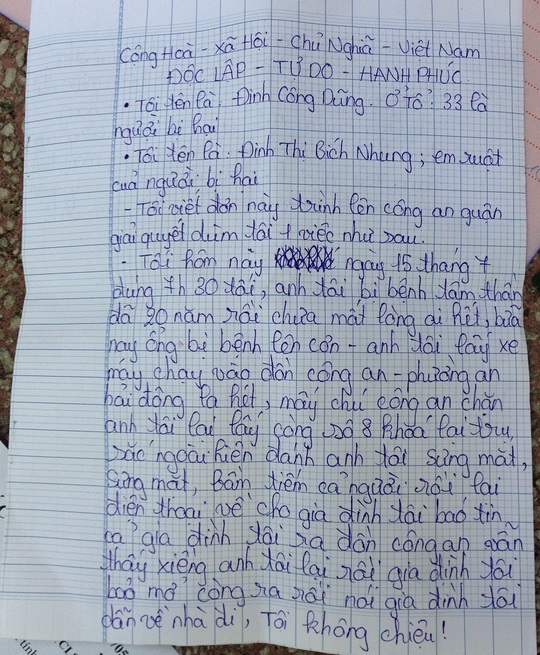 Công Hoà - Xã Hôi - Chủ Nghiã - Việt Nam
ĐÔC LÂP - TỰ DO - HANH PHÚC.
• Tôi tên là: Đinh Công Dũng. Ở Tổ: 33 là
người bi hai
• Tôi tên là: Đinh Thị Bích Nhung; em ruột
cuả người bi hai
- Tôi viết đơn này trình lên công an quận
giải quyết dùm tôi 1 việc như sau.
- Tối hôm này ngày 15 tháng 7
đung 7h 30 tối, anh tôi bi bệnh tâm thần
đã 20 năm rồi chưa mất lòng ai hết, bữa
nay ổng bi bệnh lên cơn - anh tôi lấy xe
máy chay vào đồn công an - phường an
hải đông la hét, mấy chú công an chăn
anh tôi lai lấy còng số 8 khoá lai trụ
sắc ngoài hiên đánh anh tôi sưng mắt,
sưng mặt, Bầm tiếm cả người rồi lai
điện thoai về cho gia đình tôi báo tin
cả gia đình tôi ra đồn công an vẫn
thấy xiềng anh tôi lai rồi gia đình tôi
bảo mở còng ra rồi nói gia đình tôi
dẫn về nhà đi, Tôi không chiệu!